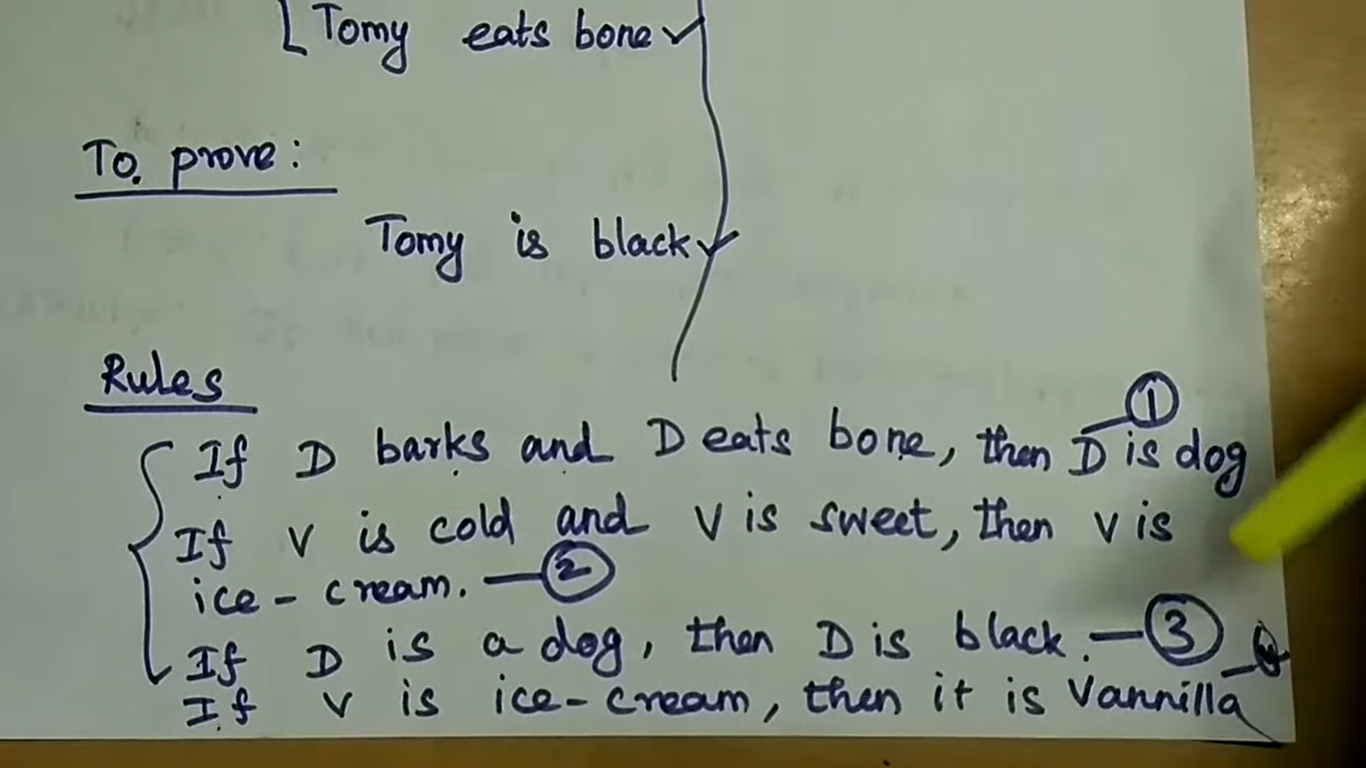 [Tomy eats bone ✓
To prove:
Tomy is black ✓
Rules
If D barks and D eats bone, then D is dog — ①
If V is cold and V is sweet, then V is
ice-cream. — ②
If D is a dog, then D is black. — ③
If V is ice-cream, then it is Vannilla